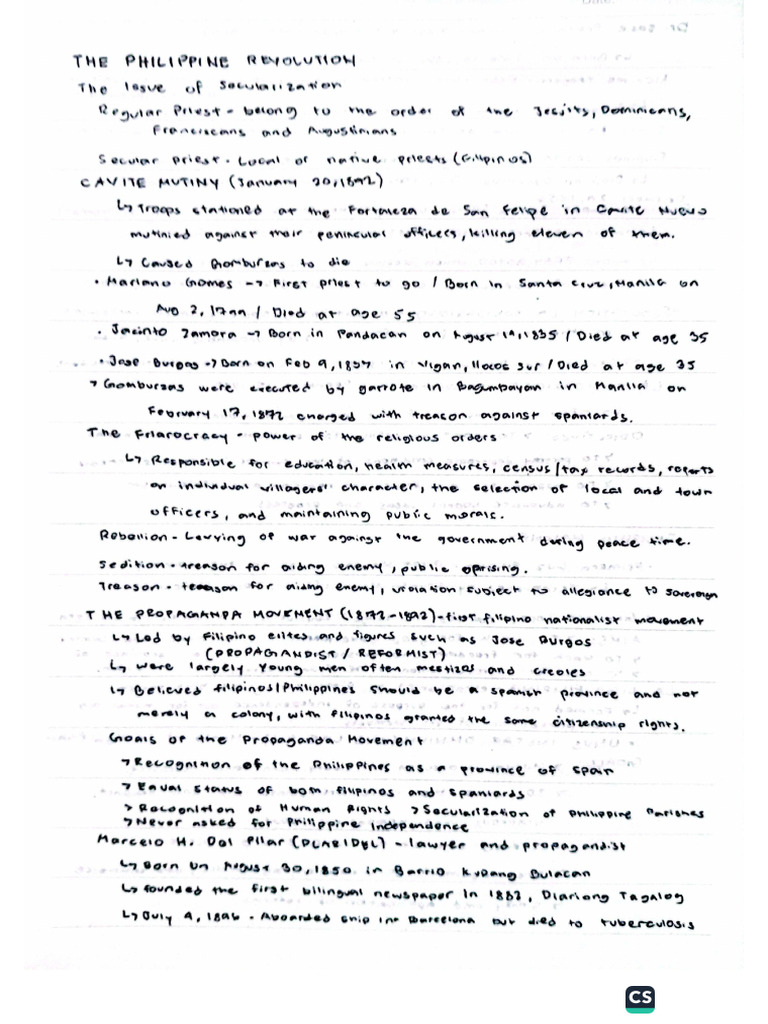 THE PHILIPPINE REVOLUTION
The Issue of Secularization
Regular Priest - belong to the order of the Jesuits, Dominicans,
Franciscans and Augustinians
Secular priest - Local or native priests (Filipinos)
CAVITE MUTINY (January 20, 1872)
↳ Troops stationed at the Fortaleza de San Felipe in Cavite Nuevo
mutinied against their peninsular officers, killing eleven of them.
↳ Caused Gomburzas to die
• Mariano Gomes → First priest to go / Born in Santa Cruz, Manila on
Aug 2, / Died at age 55
• Jacinto Zamora → Born in Pandacan on August 14, 1835 / Died at age 35
• Jose Burgos → Born on Feb 9, 1837 in Vigan, Ilocos Sur / Died at age 35
> Gomburzas were executed by garrote in Bagumbayan in Manila on
February 17, 1872 charged with treason against spaniards.
The Friarocracy - power of the religious orders
↳ Responsible for education, health measures, census/tax records, reports
on individual villagers' character, the selection of local and town
officers, and maintaining public morals.
Rebellion - Levying of war against the government during peace time.
Sedition - treason for aiding enemy, public uprising.
Treason - for aiding enemy, violation subject to allegiance to sovereign
THE PROPAGANDA MOVEMENT (1872-1892) - first filipino nationalist movement
↳ Led by Filipino elites and figures such as Jose Burgos
(PROPAGANDIST / REFORMIST)
↳ Were largely young men often mestizos and creoles
↳ Believed filipinos/Philippines should be a spanish province and not
merely a colony, with filipinos granted the same citizenship rights.
Goals of the Propaganda Movement
> Recognition of the Philippines as a province of Spain
> Equal status of both filipinos and spaniards
> Recognition of Human Rights > Secularization of Philippine Parishes
> Never asked for Philippine Independence
Marcelo H. Del Pilar (PLARIDEL) - lawyer and propagandist
↳ Born on August 30, 1850 in Barrio Kupang Bulacan
↳ founded the first bilingual newspaper in 1882, Diariong Tagalog
↳ July 4, 1896 - Aboarded ship in Barcelona but died to tuberculosis
CS